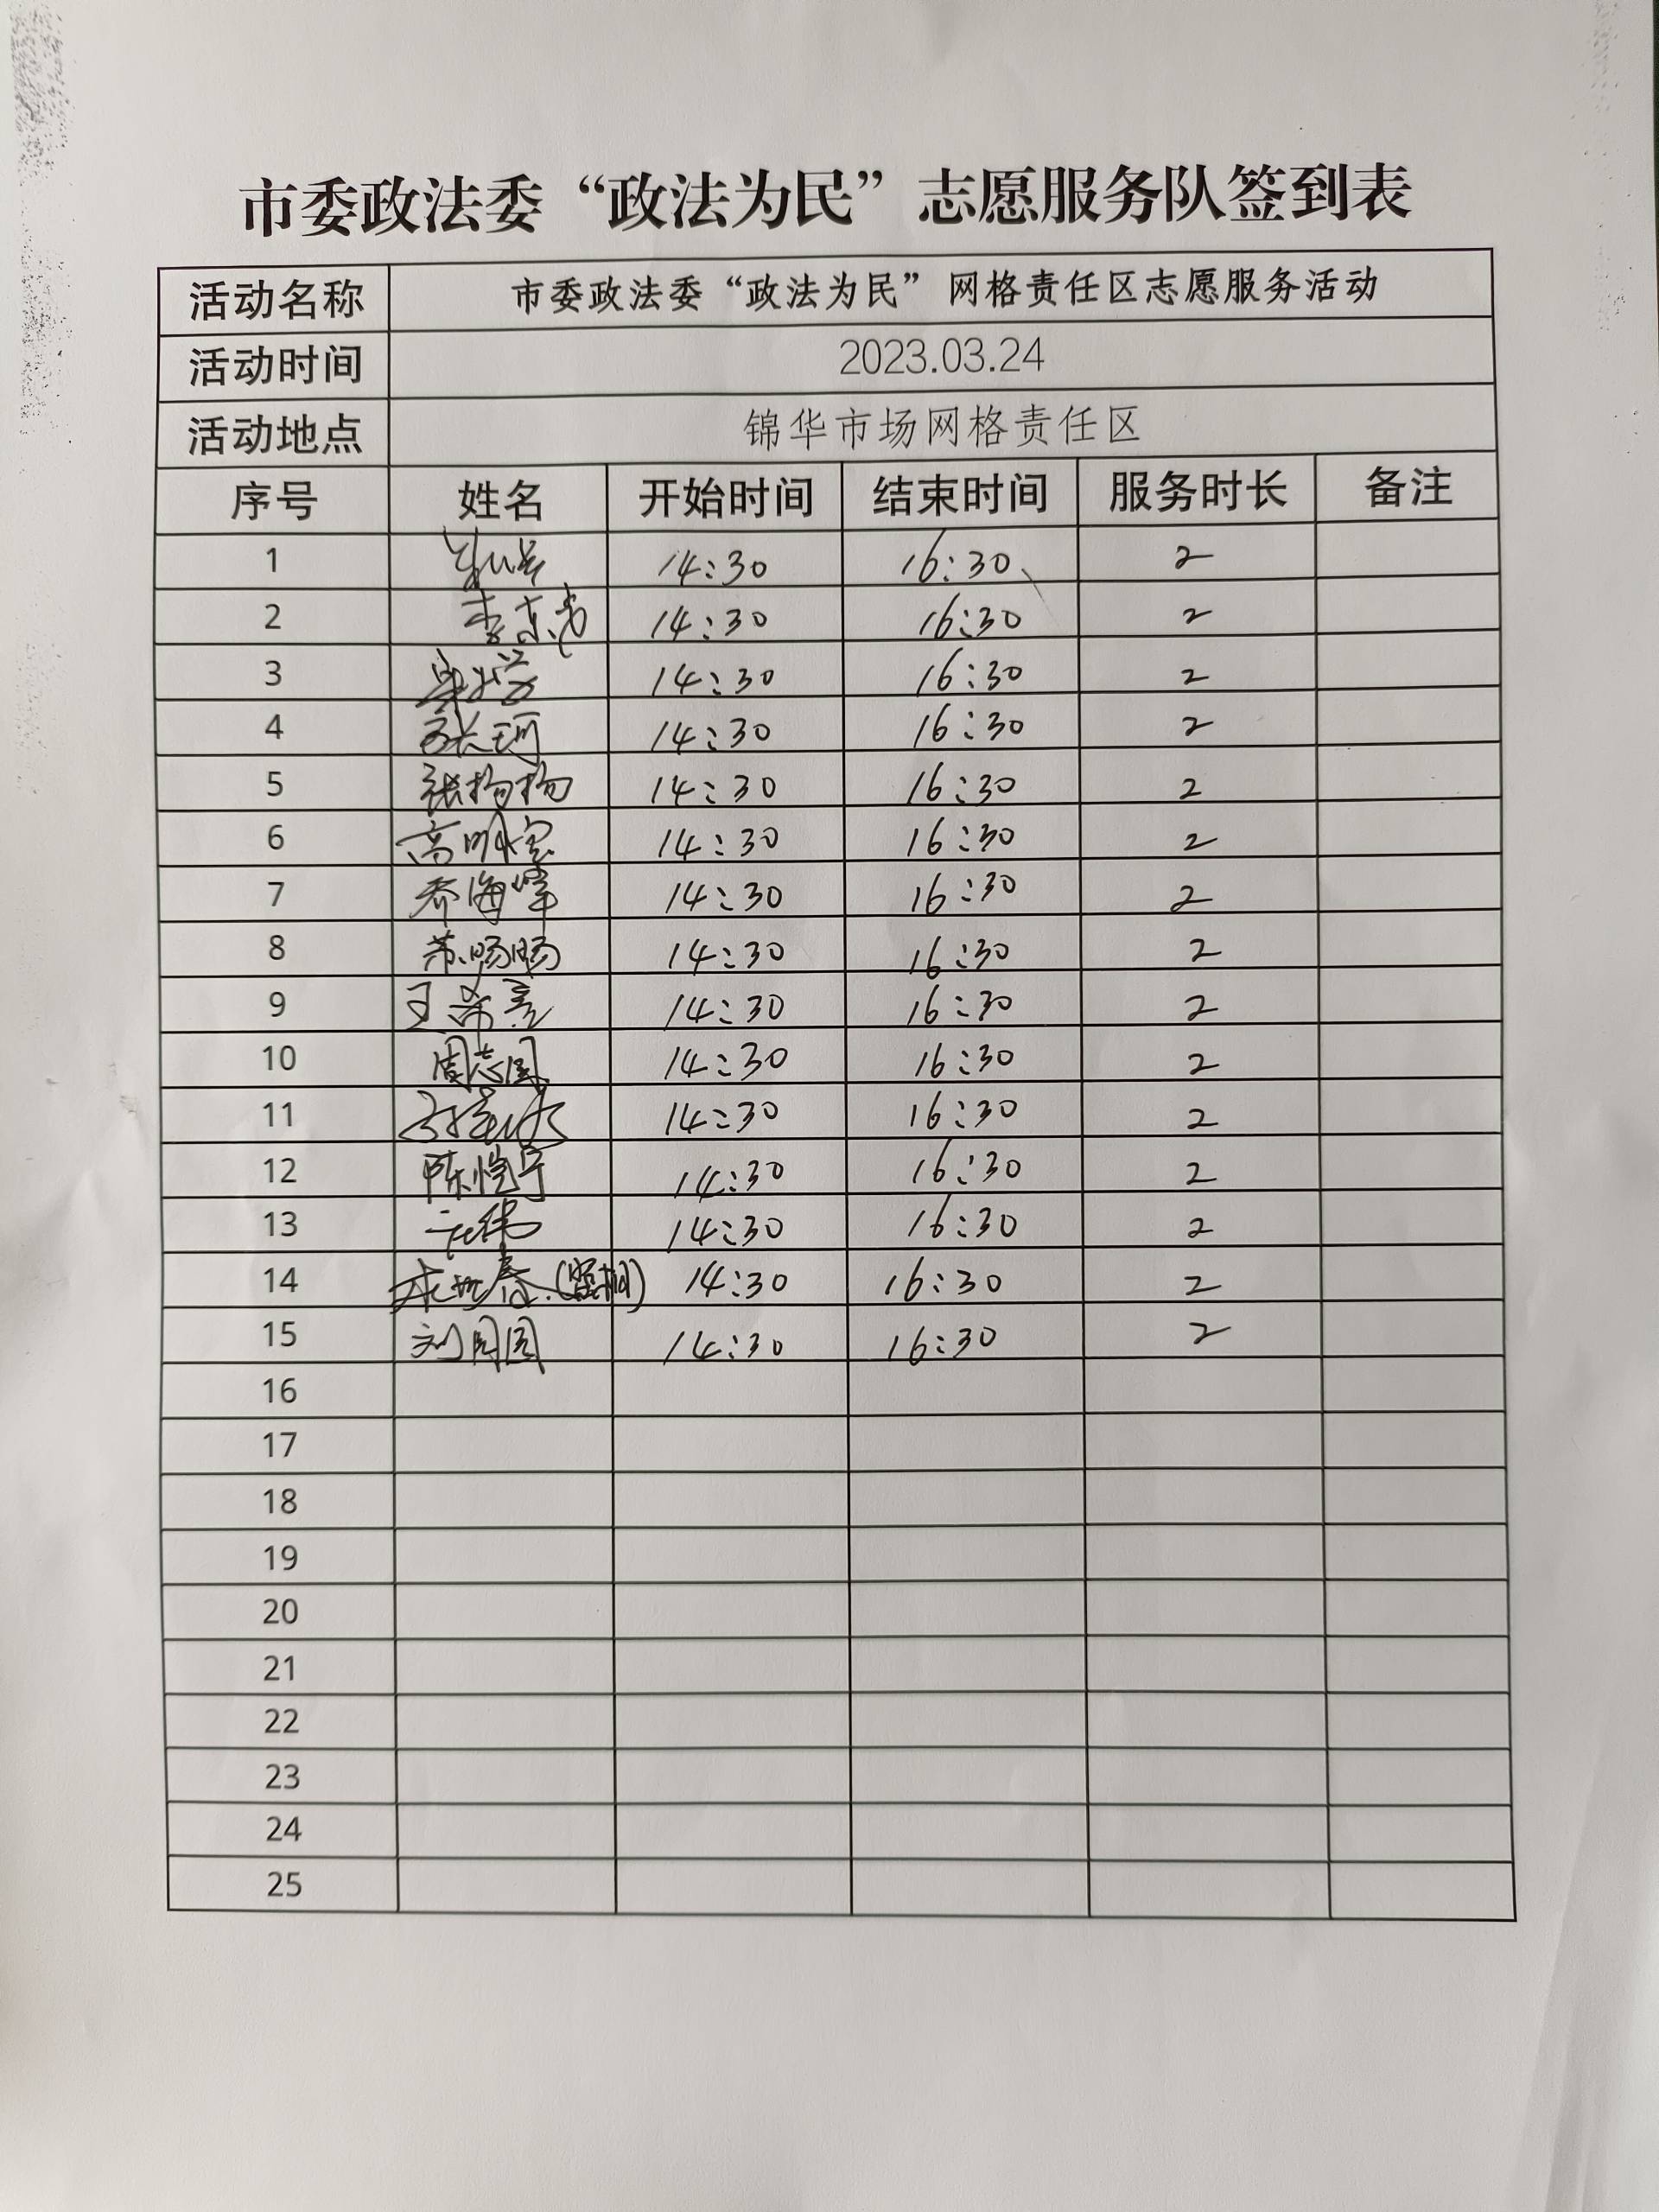 市委政法委“政法为民”志愿服务队签到表
活动名称 市委政法委“政法为民”网格责任区志愿服务活动
活动时间 2023.03.24
活动地点 锦华市场网格责任区
序号 姓名 开始时间 结束时间 服务时长 备注
1 14:30 16:30 2
2 李 14:30 16:30 2
3 14:30 16:30 2
4 张珂 14:30 16:30 2
5 张杨杨 14:30 16:30 2
6 高明宝 14:30 16:30 2
7 乔海峰 14:30 16:30 2
8 苏旸旸 14:30 16:30 2
9 王 14:30 16:30 2
10 周志国 14:30 16:30 2
11 14:30 16:30 2
12 陈恺宁 14:30 16:30 2
13 伟 14:30 16:30 2
14 春 14:30 16:30 2
15 刘园园 14:30 16:30 2
16
17
18
19
20
21
22
23
24
25